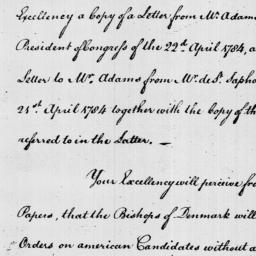 Excellency a Copy of a Letter from Mr. Adams
President of Congress of the 22d. April 1784, a
Letter to Mr. Adams from Mr. de St. Sapho
21st. April 1784 together with the Copy of th
referred to in the Latter. —
Your Excellency will perceive fro
Papers, that the Bishops of Denmark will
Orders on american Candidates without a